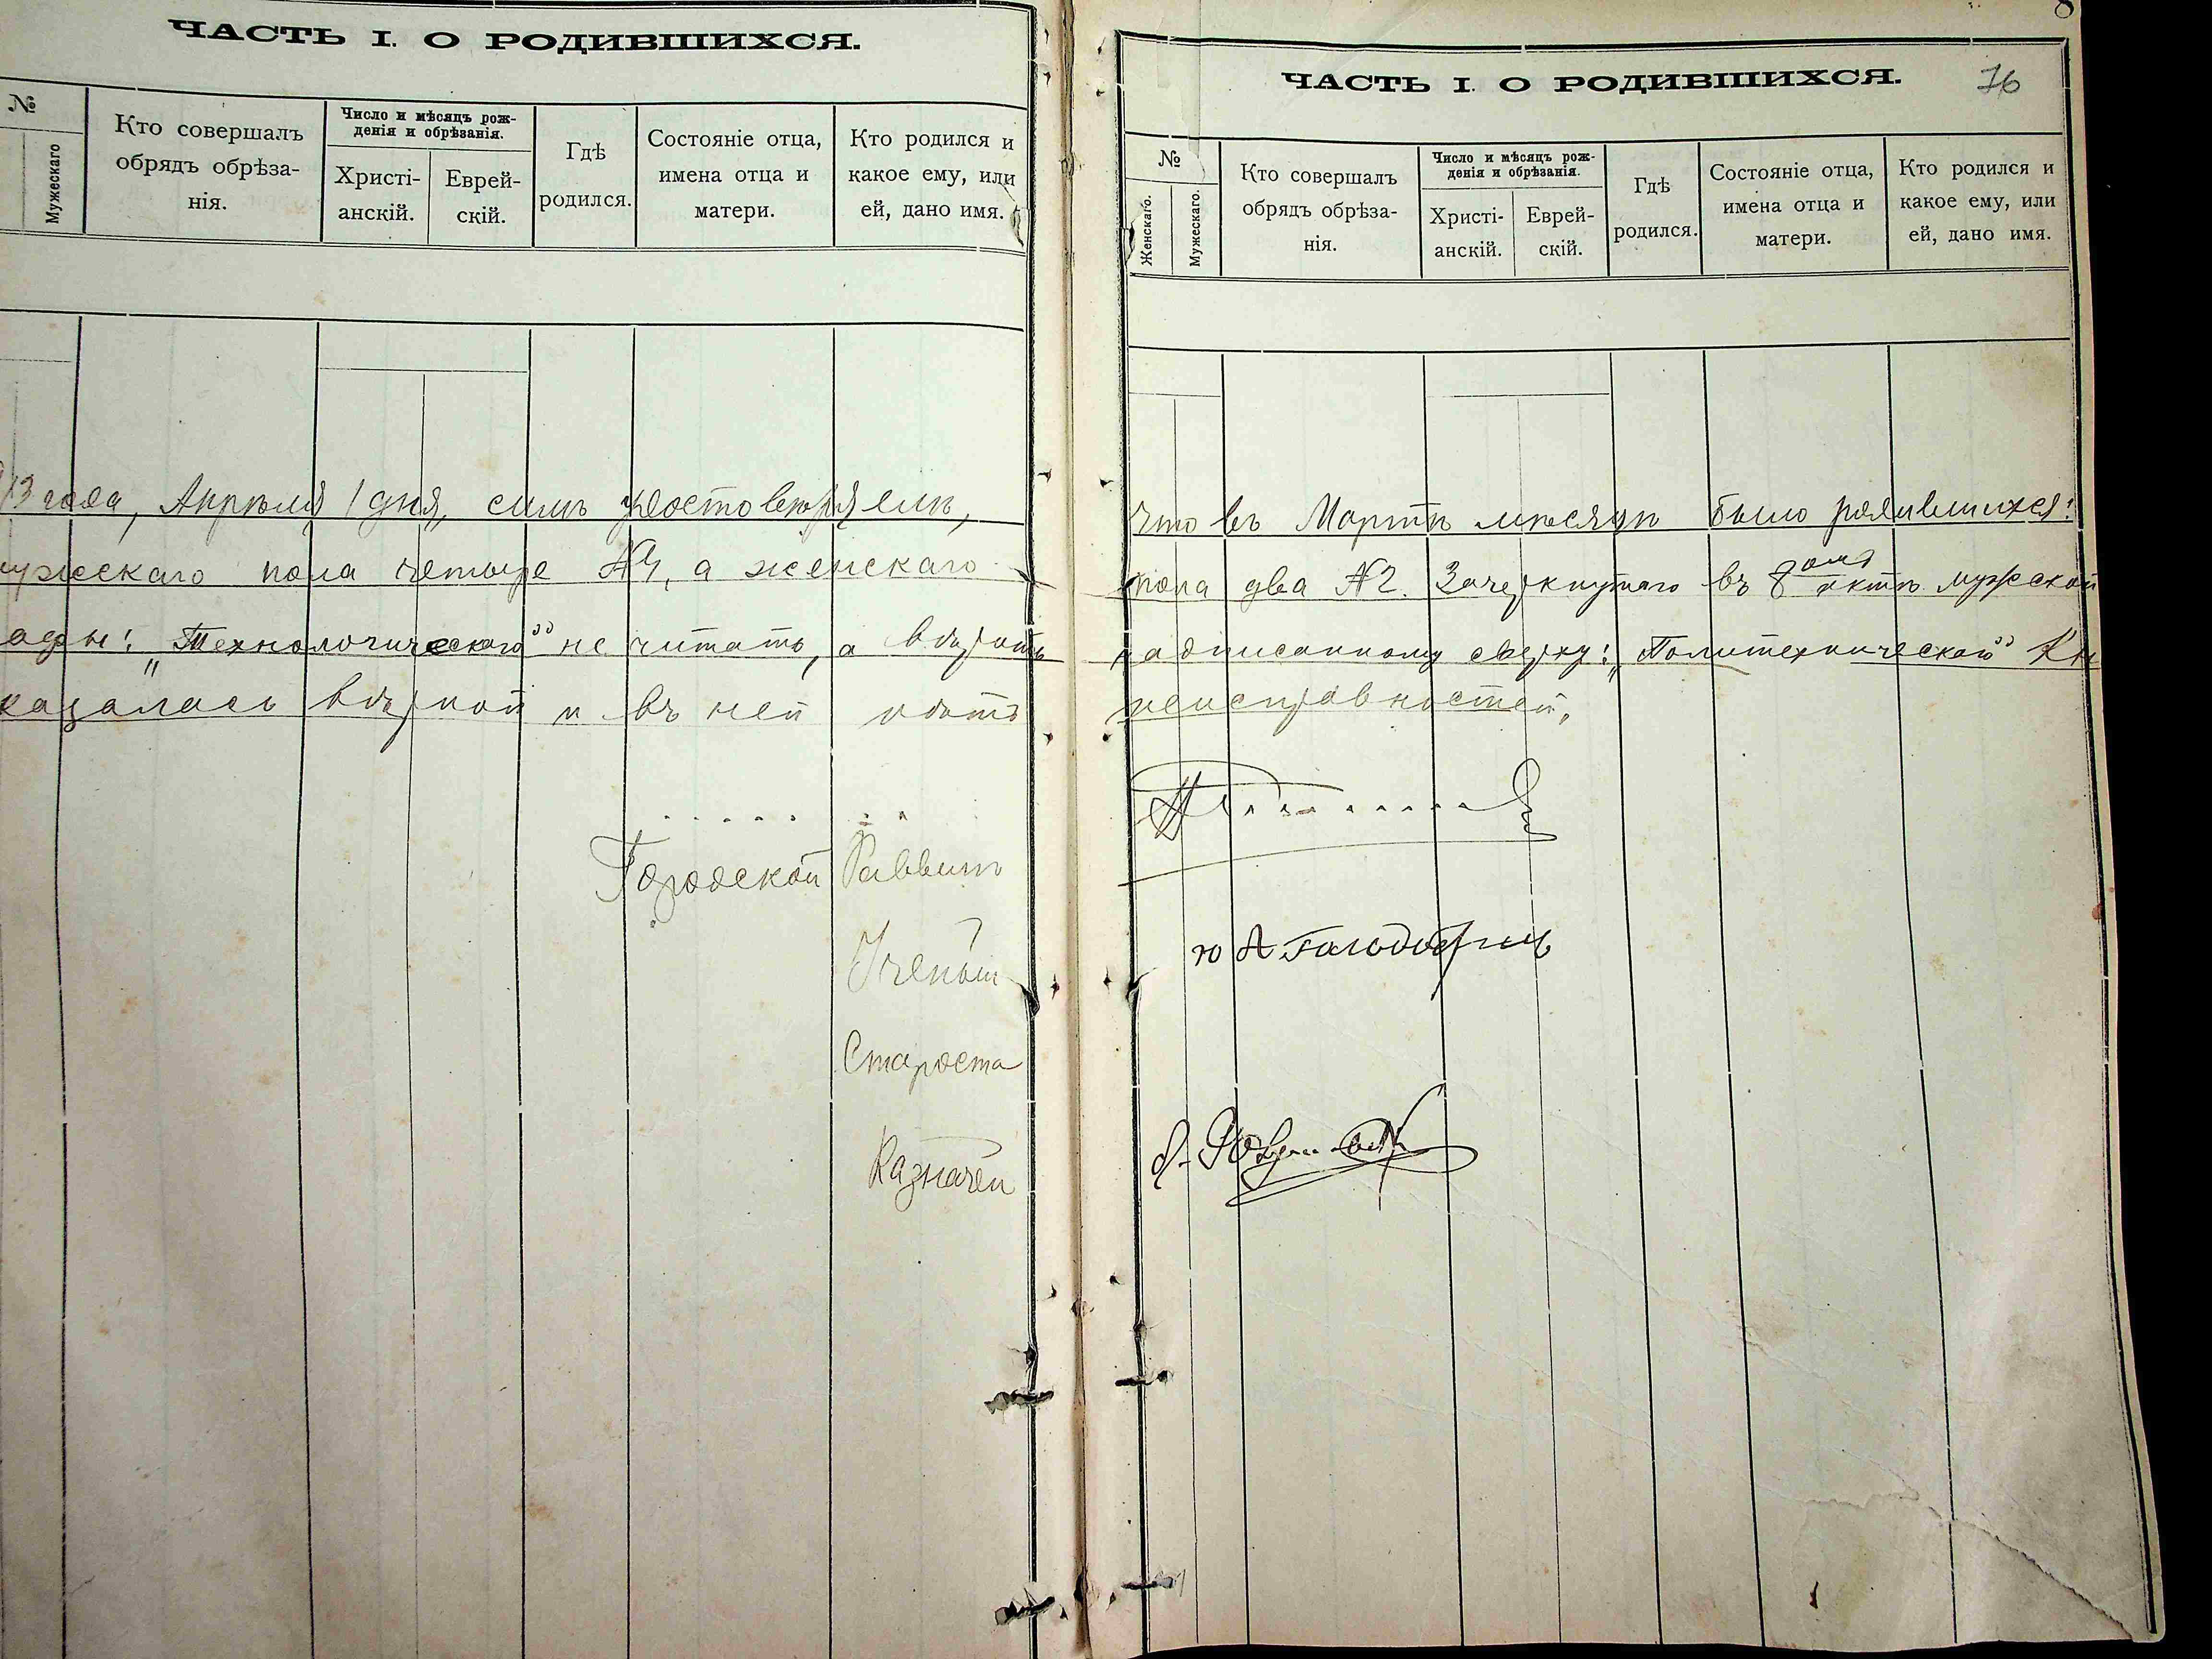 ЧАСТЬ I. О РОДИВШИХСЯ.
№
Мужескаго
Кто совершалъ
обрядъ обрѣза-
нія.
Число и мѣсяцъ рож-
денія и обрѣзанія.
Христі-
анскій.
Еврей-
скій.
Гдѣ
родился.
Состояніе отца,
имена отца и
матери.
Кто родился и
какое ему, или
ей, дано имя.
13 года, Апрѣля 1 дня, симъ удостовѣряемъ,
мужескаго пола четыре №4, а женскаго
„Технологическаго" не читать, а вѣрить
казалась вѣрной и въ ней нѣтъ
Городской Раввинъ
Ученый
Староста
Казначей
ЧАСТЬ I. О РОДИВШИХСЯ.
76
№
Женскаго.
Мужескаго.
Кто совершалъ
обрядъ обрѣза-
нія.
Число и мѣсяцъ рож-
денія и обрѣзанія.
Христі-
анскій.
Еврей-
скій.
Гдѣ
родился.
Состояніе отца,
имена отца и
матери.
Кто родился и
какое ему, или
ей, дано имя.
что въ Мартѣ мѣсяцѣ было родившихся:
пола два №2. Зачеркнутаго въ 8омъ актѣ мужской
надписанному сверху: „Политехнической" Кн
неисправностей.